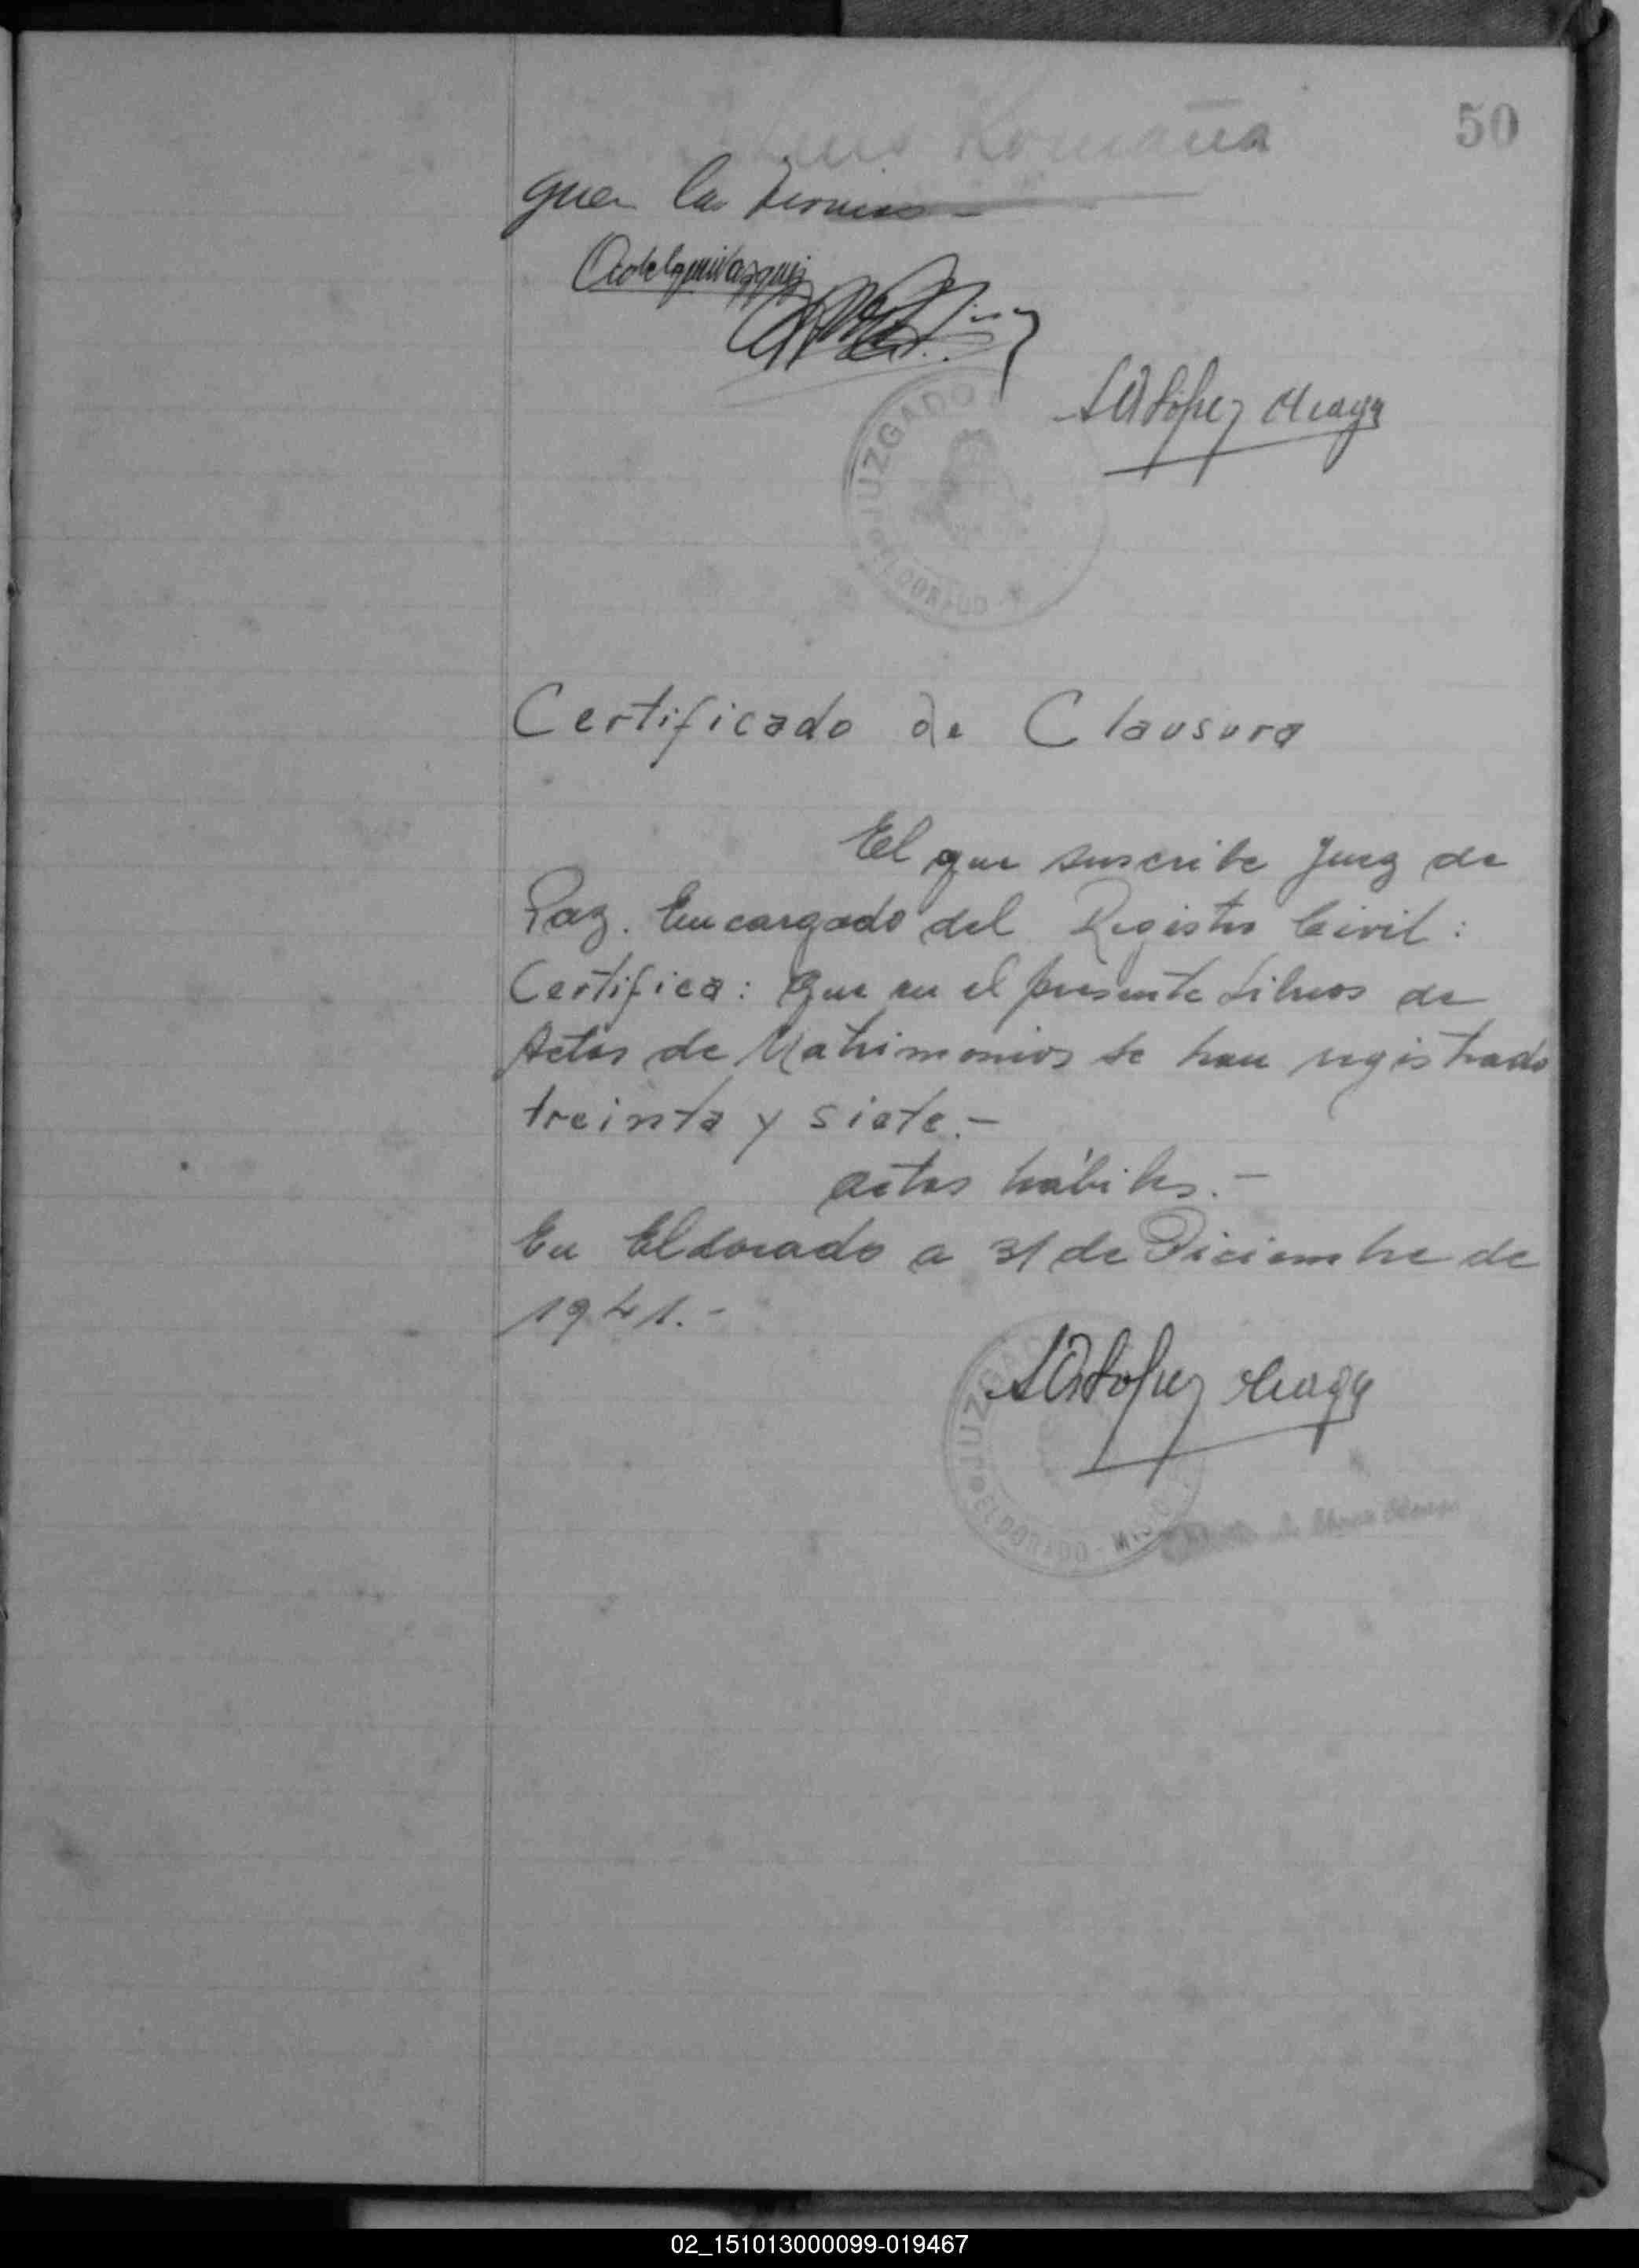 50
Romaña
que la
JUZGADO
ELDORADO
López
Certificado de Clausura
El que suscribe Juez de
Paz. Encargado del Registro Civil:
Certifica: Que en el presente Libros de
Actas de Matrimonios se han registrado
treinta y siete.-
actas hábiles.-
En Eldorado a 31 de Diciembre de
1941.-
López
ELDORADO - MIS
02_151013000099-019467